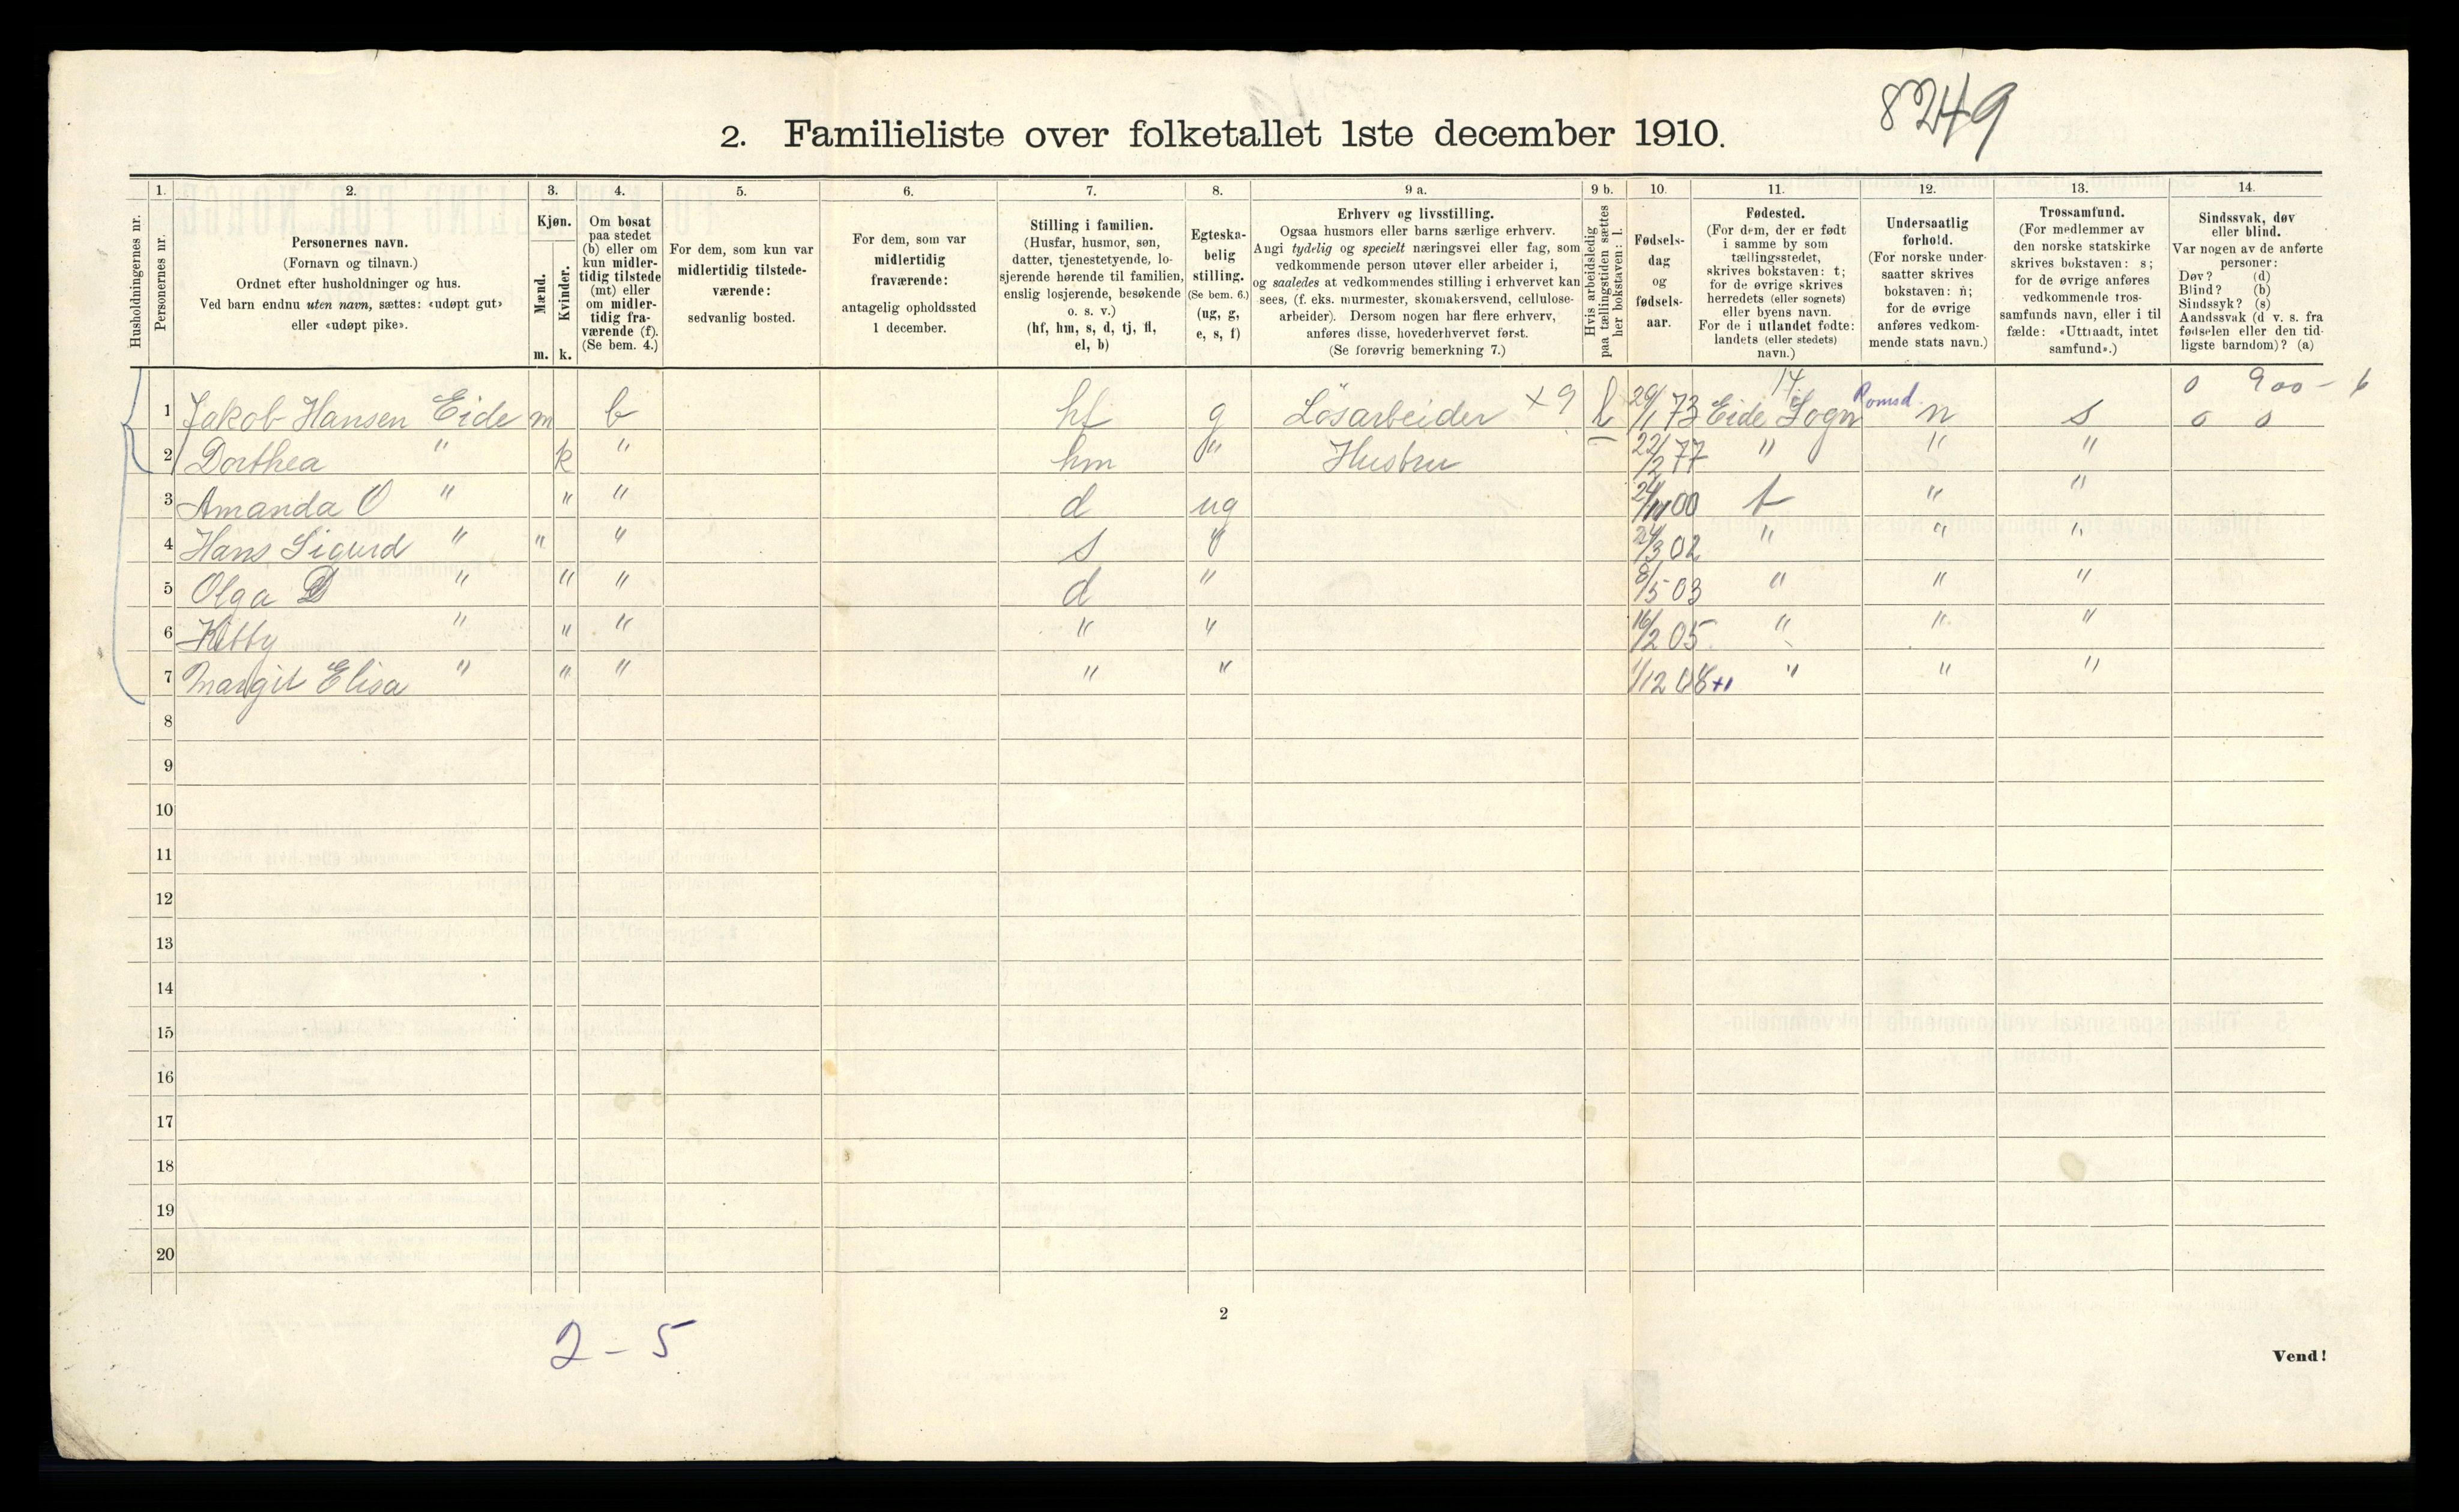 8249
2. Familieliste over folketallet 1ste december 1910.
1. 2. 3. 4. 5. 6. 7. 8. 9 a. 9 b. 10. 11. 12. 13. 14.
Husholdningernes nr.
Personernes nr.
Personernes navn.
(Fornavn og tilnavn.)
Ordnet efter husholdninger og hus.
Ved barn endnu uten navn, sættes: «udøpt gut»
eller «udøpt pike».
Kjøn.
Mænd.
m.
Kvinder.
k.
Om bosat
paa stedet
(b) eller om
kun midler-
tidig tilstede
(mt) eller
om midler-
tidig fra-
værende (f).
(Se bem. 4.)
For dem, som kun var
midlertidig tilstede-
værende:
sedvanlig bosted.
For dem, som var
midlertidig
fraværende:
antagelig opholdssted
1 december.
Stilling i familien.
(Husfar, husmor, søn,
datter, tjenestetyende, lo-
sjerende hørende til familien,
enslig losjerende, besøkende
o. s. v.)
(hf, hm, s, d, tj, fl,
el, b)
Egteska-
belig
stilling.
(Se bem. 6.)
(ug, g,
e, s, f)
Erhverv og livsstilling.
Ogsaa husmors eller barns særlige erhverv.
Angi tydelig og specielt næringsvei eller fag, som
vedkommende person utøver eller arbeider i,
og saaledes at vedkommendes stilling i erhvervet kan
sees, (f. eks. murmester, skomakersvend, cellulose-
arbeider). Dersom nogen har flere erhverv,
anføres disse, hovederhvervet først.
(Se forøvrig bemerkning 7.)
Hvis arbeidsledig
paa tællingstiden sættes
her bokstaven: l.
Fødsels-
dag
og
fødsels-
aar.
Fødested.
(For dem, der er født
i samme by som
tællingsstedet,
skrives bokstaven: t;
for de øvrige skrives
herredets (eller sognets)
eller byens navn.
For de i utlandet fødte:
landets (eller stedets)
navn.)
Undersaatlig
forhold.
(For norske under-
saatter skrives
bokstaven: n;
for de øvrige
anføres vedkom-
mende stats navn.)
Trossamfund.
(For medlemmer av
den norske statskirke
skrives bokstaven: s;
for de øvrige anføres
vedkommende tros-
samfunds navn, eller i til
fælde: «Uttraadt, intet
samfund».)
Sindssvak, døv
eller blind.
Var nogen av de anførte
personer:
Døv? (d)
Blind? (b)
Sindssyk? (s)
Aandssvak (d v. s. fra
fødselen eller den tid-
ligste barndom)? (a)
0 900 - 6
1 Jakob Hansen Eide m b hf g Løsarbeider x 9 l 29/1 73 Eide Sogn Romsd. n s 0 0
2 Dorthea " k " hm " Hustru 22/2 77 " " "
3 Amanda O " " " d ug 24/11 00 t " "
4 Hans Sigurd " " " s " 24/3 02 " " "
5 Olga D " " " d " 8/5 03 " " "
6 Kitty " " " " " 16/2 05 " " "
7 Margit Elisa " " " " " 1/12 08 +1 " " "
8
9
10
11
12
13
14
15
16
17
18
19
20
2
2 - 5
Vend!